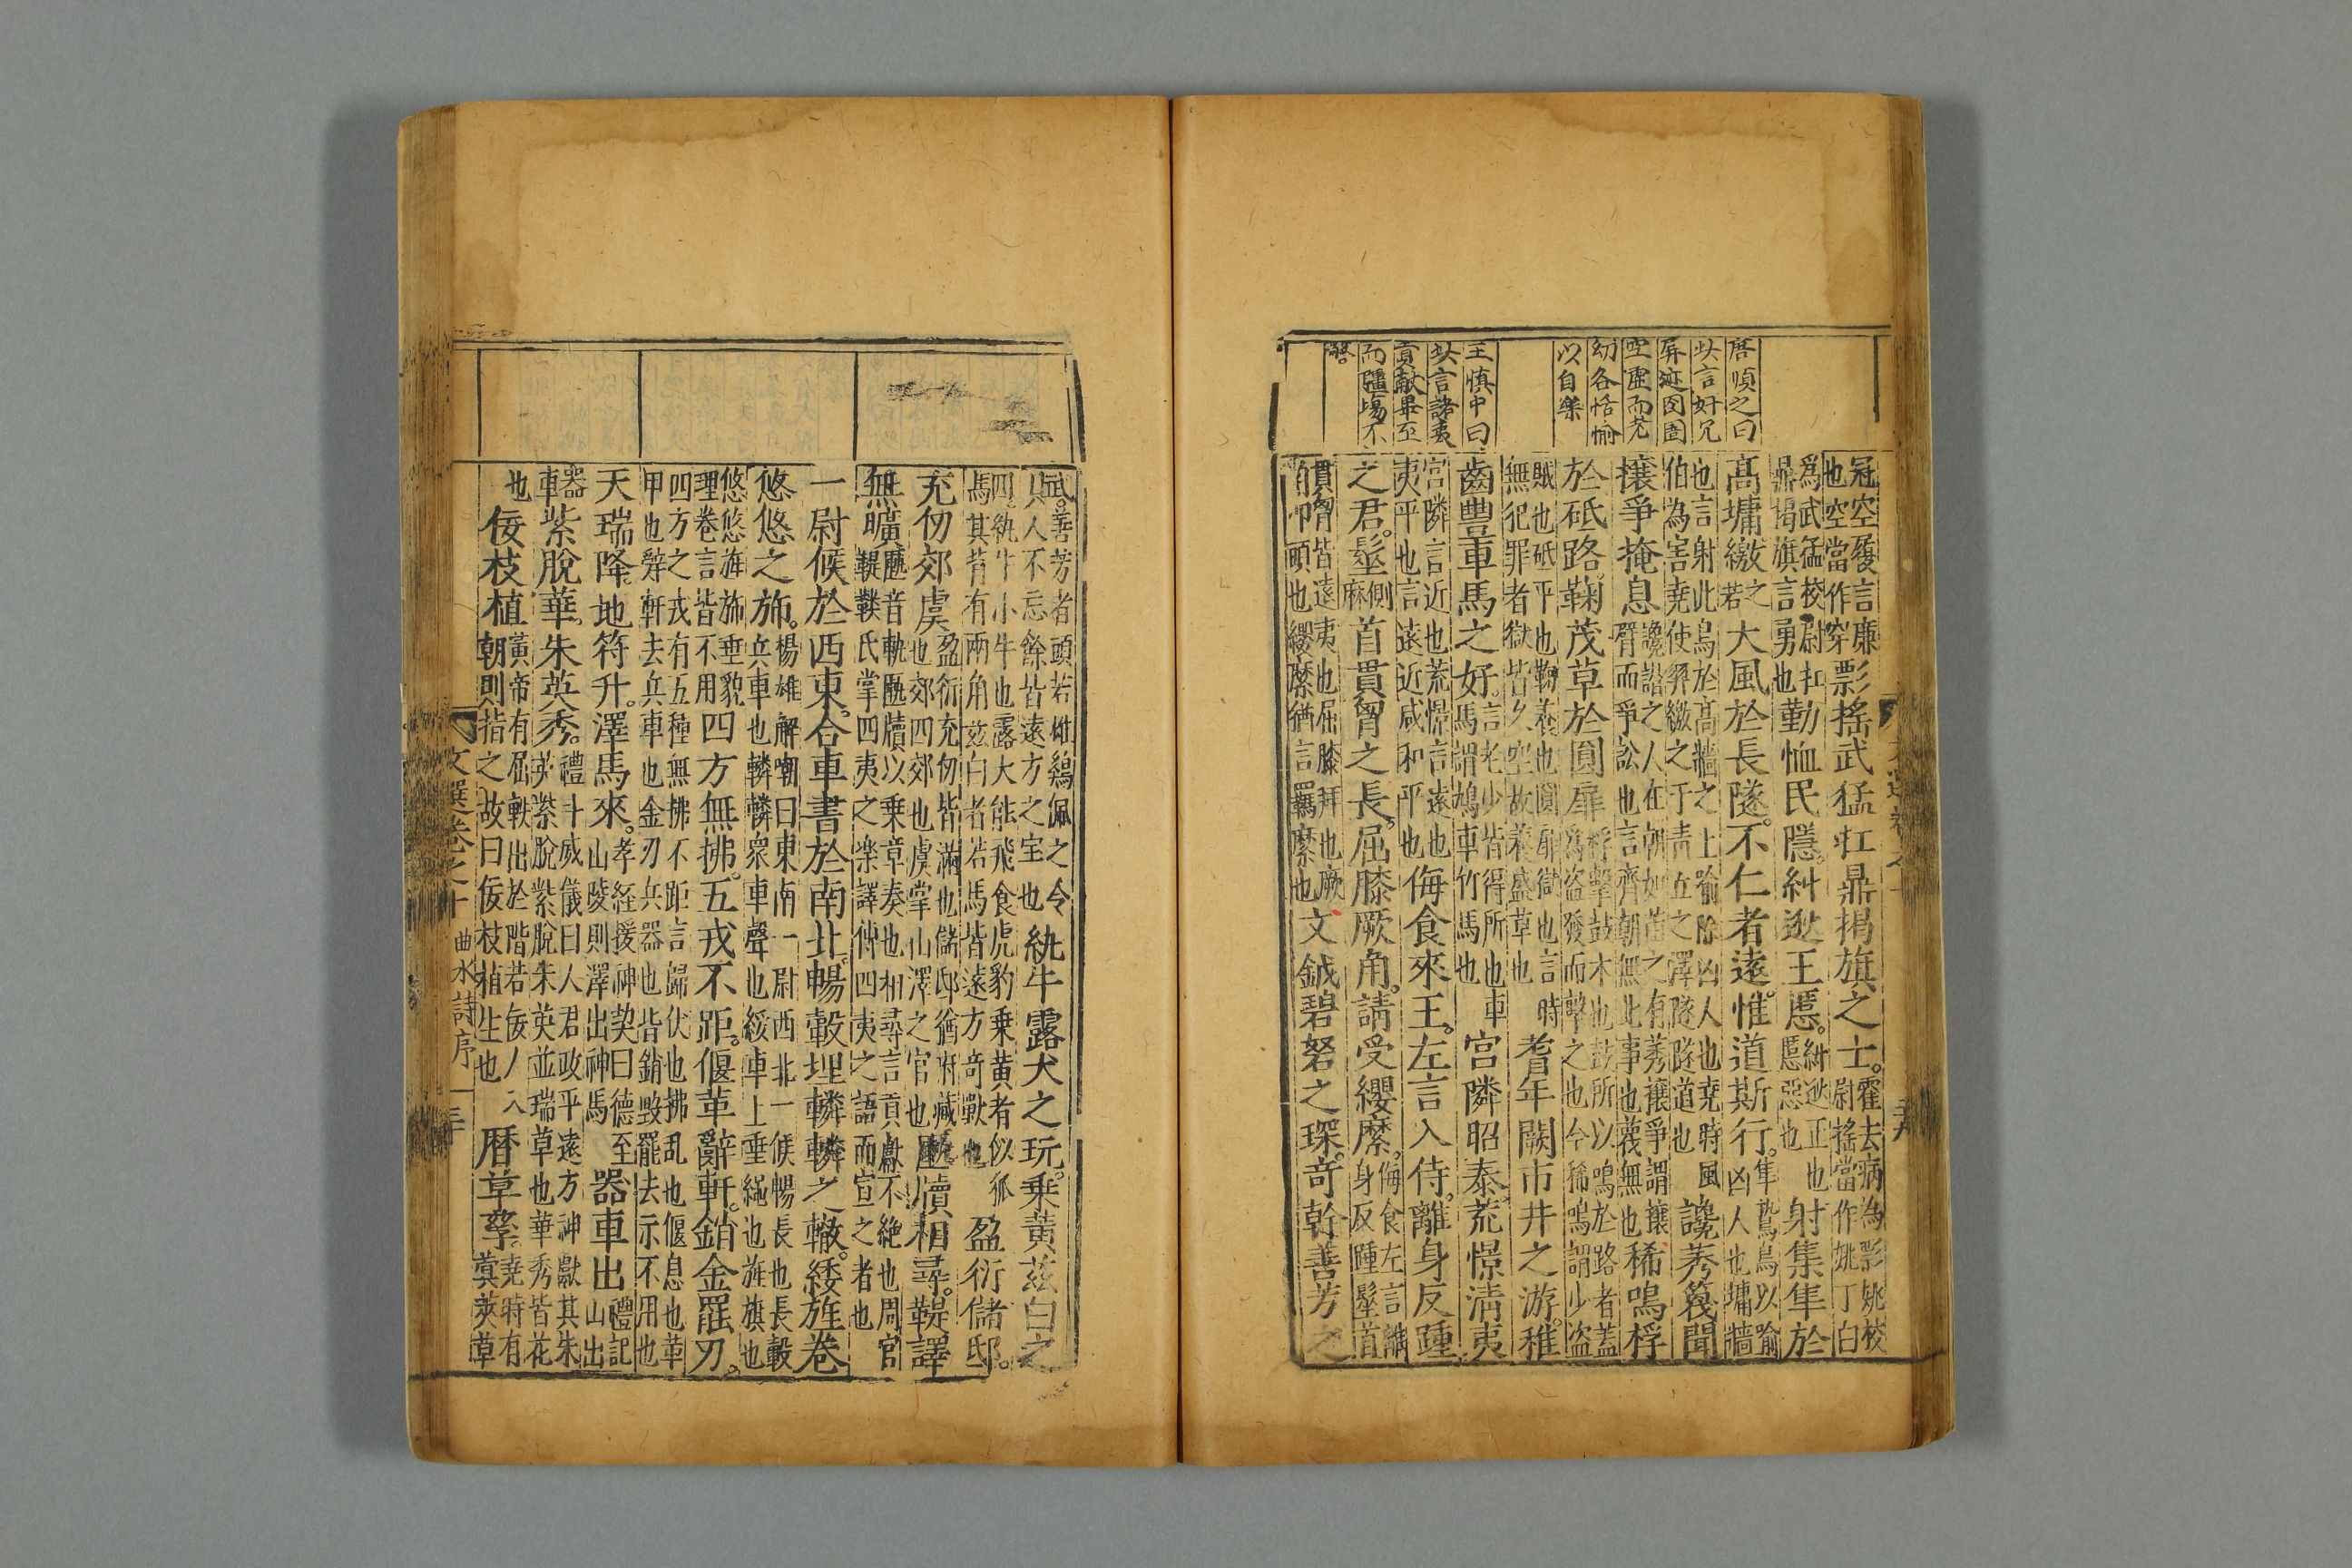 唐順之曰
此言奸兄
屏迹囹圄
空虛而老
幼各恬愉
以自樂
王慎中曰
此言諸夷
貢獻畢至
而疆場不
警
冠空履言廉
也空當作穿
彯搖武猛扛鼎揭旗之士。
霍去病為彯姚校
尉搖當作姚丁白
爲武猛校尉扛
鼎揭旗言勇也
勤恤民隱。糾逖王慝。
糾逖正也
慝惡也
射集隼於
高墉繳大風於長隧。不仁者遠。惟道斯行。
隼鷙鳥以喻
凶人也墉牆
也言射此鳥於高牆之上喻除凶人也堯時風
伯為害堯使羿繳之于青丘之澤隧隧道也
讒莠蔑聞
攘爭掩息
讒譖之人在朝如苗之有莠攘爭謂攘
臂而爭訟也言齊朝無此事也蔑無也
稀鳴桴
於砥路。鞠茂草於圓扉
桴擊鼓木也鼓所以鳴於路者蓋
為盜發而擊之也今稀鳴謂少盜
賊也砥平也鞠養也圓扉獄也言時
無犯罪者獄皆久空故養盛草也
耆年闕市井之游。稚
齒豐車馬之好。
言老少皆得所也車
馬謂鳩車竹馬也
宮隣昭泰。荒憬清夷
宮隣言近也荒憬言遠也
夷平也言遠近咸和平也
侮食來王。左言入侍。離身反踵
之君。髽首貫胷之長。屈膝厥角。請受纓縻。
侮食左言離
身反踵髽首
貫胷皆遠夷也屈膝拜也厥
角叩頭也纓縻猶言羈縻也
文鉞碧砮之琛。奇幹善芳之
賦。善芳者頭若雄鷄佩之令
人不忘餘皆遠方之宝也
紈牛露犬之玩。乘黃茲白之
駟。紈牛小牛也露犬能飛食虎豹乘黄者似狐
其背有兩角茲白者若馬皆遠方奇獸也
盈衍儲邸。
充仞郊虞
盈衍充仞皆滿也儲邸猶府藏
也郊四郊也虞掌山澤之官也
匭牘相尋。鞮譯
無曠
匭音軌匭牘以乗章奏也相尋言貢獻不絶也周官
鞮鞻氏掌四夷之樂譯傳四夷之語而宣之者也
一尉候於西東。合車書於南北。暢轂埋轔轔之轍。綏旌卷
悠悠之斾。
楊雄解嘲曰東南一尉西北一候暢長也長轂
兵車也轔轔衆車聲也綏車上垂繩也旌旗也
悠悠旌斾垂貌
理卷言皆不用
四方無拂。五戎不距。偃革辭軒。銷金罷刃。
四方之戎有五種無拂不距言歸伏也拂乱也偃息也革
甲也辭軒去兵車也金刃兵器也皆銷毀罷去示不用也
天瑞降。地符升。澤馬來。
孝経援神契曰德至
山陵則澤出神馬
器車出
禮記
山出
器
車
紫脫華。朱英秀。
禮斗威儀曰人君政平遠方神獻其朱
英紫脫紫脫朱英並瑞草也華秀皆花
也
佞枝植
黃帝有屈軼出於階若佞人入
朝則指之故曰佞枝植生也
暦草孳。
堯時有
蓂莢草
文選卷之十 曲水詩序 三十